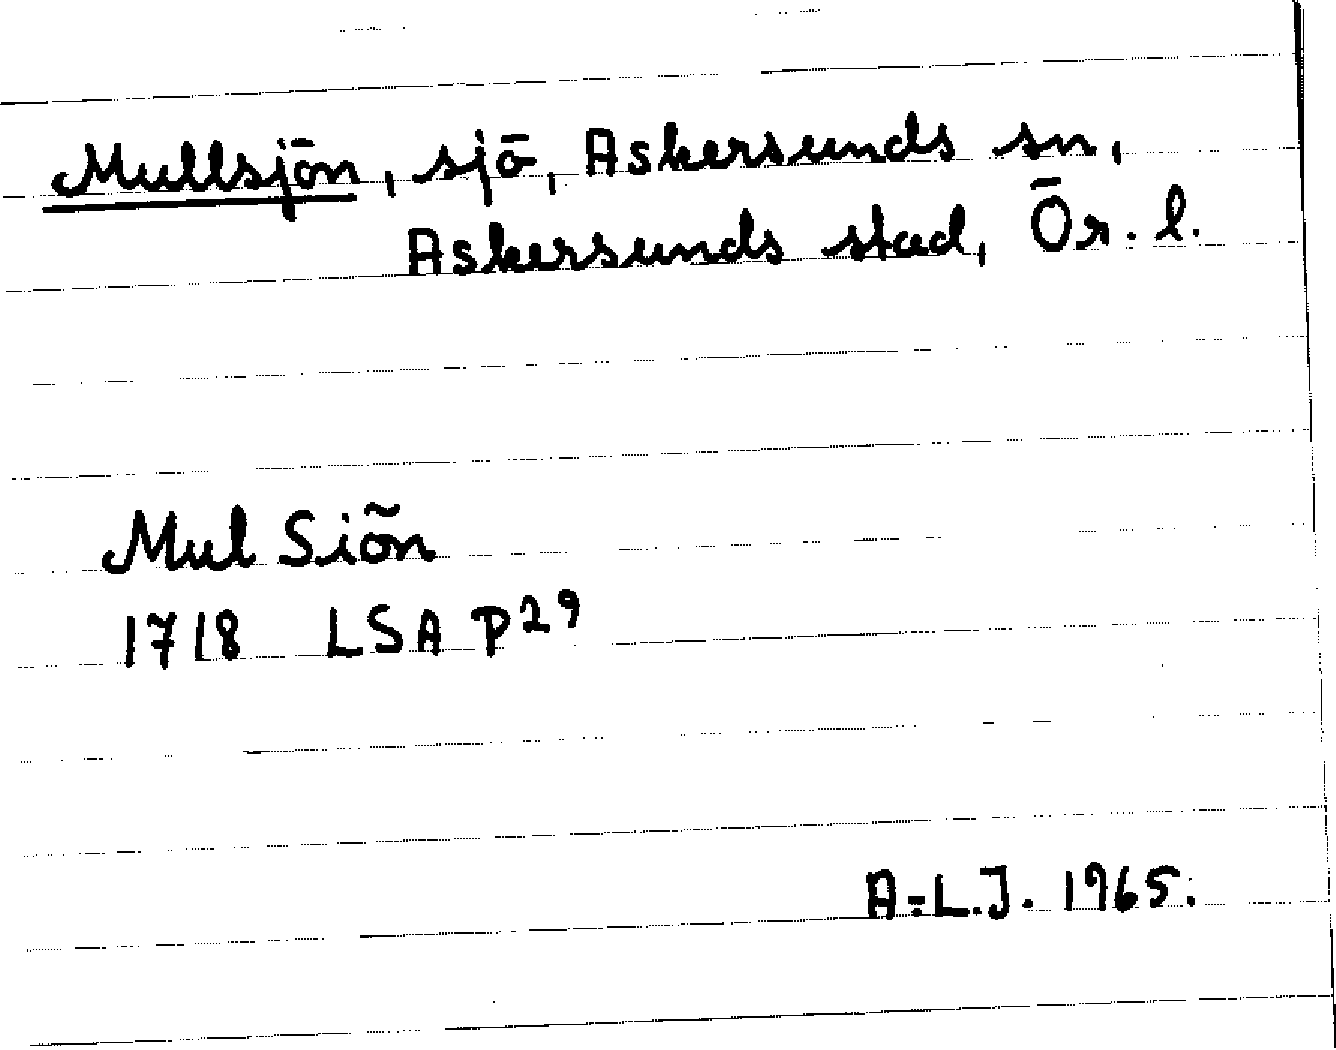 Mullsjön, sjö, Askersunds sn,
Askersunds stad, Ör. l.
Mul Siön
1718 LSA P29
A-L.J. 1965.